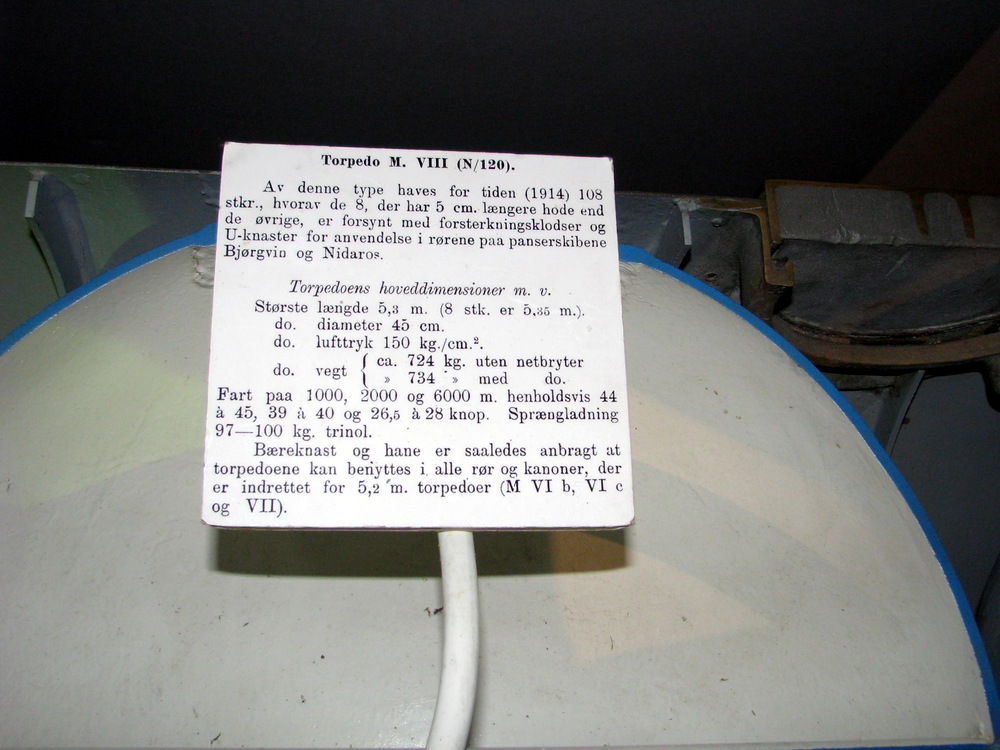 Torpedo M. VIII (N/120).
Av denne type haves for tiden (1914) 108
stkr., hvorav de 8, der har 5 cm. længere hode end
de øvrige, er forsynt med forsterkningsklodser og
U-knaster for anvendelse i rørene paa panserskibene
Bjørgvin og Nidaros.
Torpedoens hoveddimensioner m. v.
Største længde 5,3 m. (8 stk. er 5,35 m.).
do. diameter 45 cm.
do. lufttryk 150 kg./cm.².
do. vegt { ca. 724 kg. uten netbryter
» 734 » med do.
Fart paa 1000, 2000 og 6000 m. henholdsvis 44
à 45, 39 à 40 og 26,5 à 28 knop. Sprængladning
97—100 kg. trinol.
Bæreknast og hane er saaledes anbragt at
torpedoene kan benyttes i alle rør og kanoner, der
er indrettet for 5,2 m. torpedoer (M VI b, VI c
og VII).